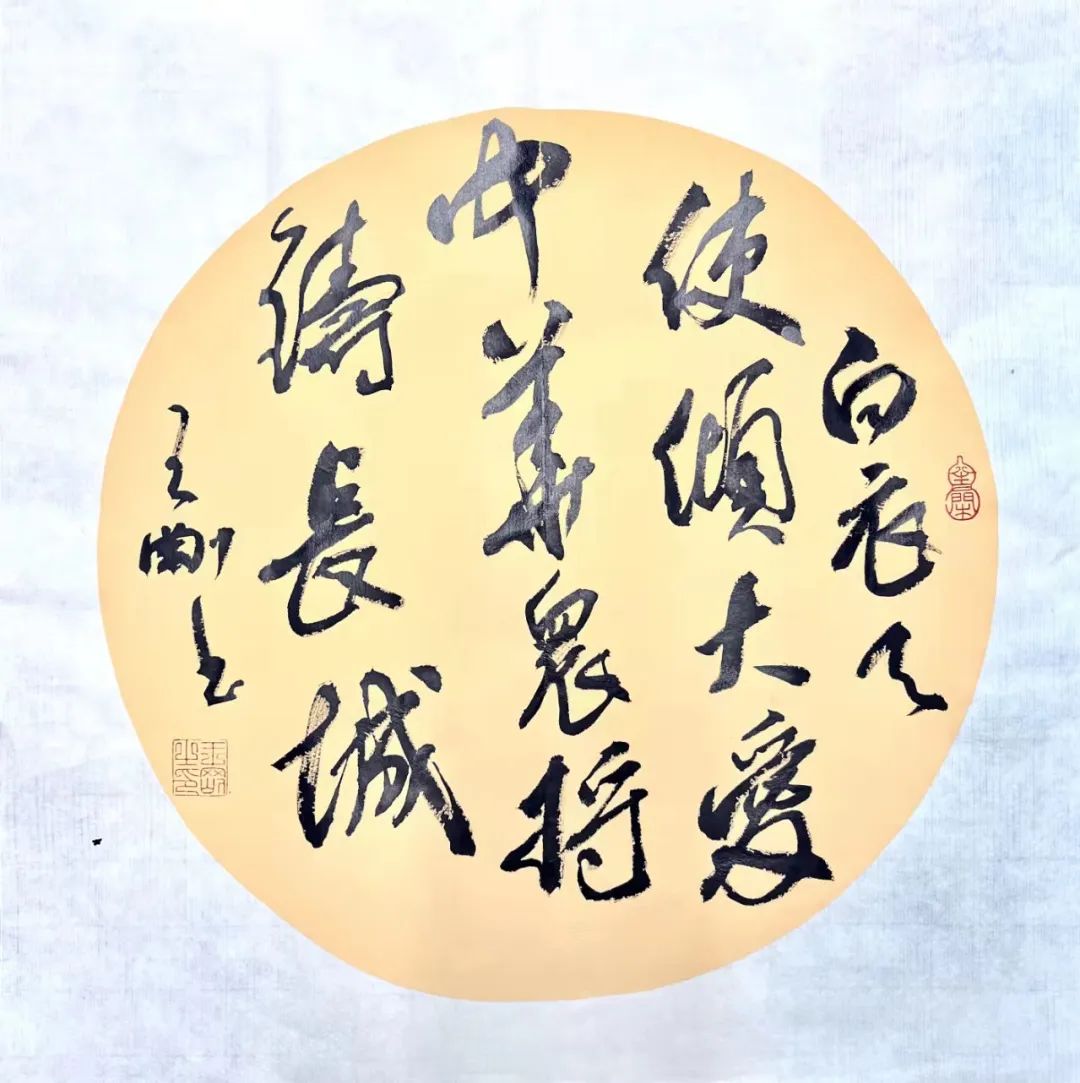 白衣天
使傾大愛
中華眾將
鑄長城
王剛书